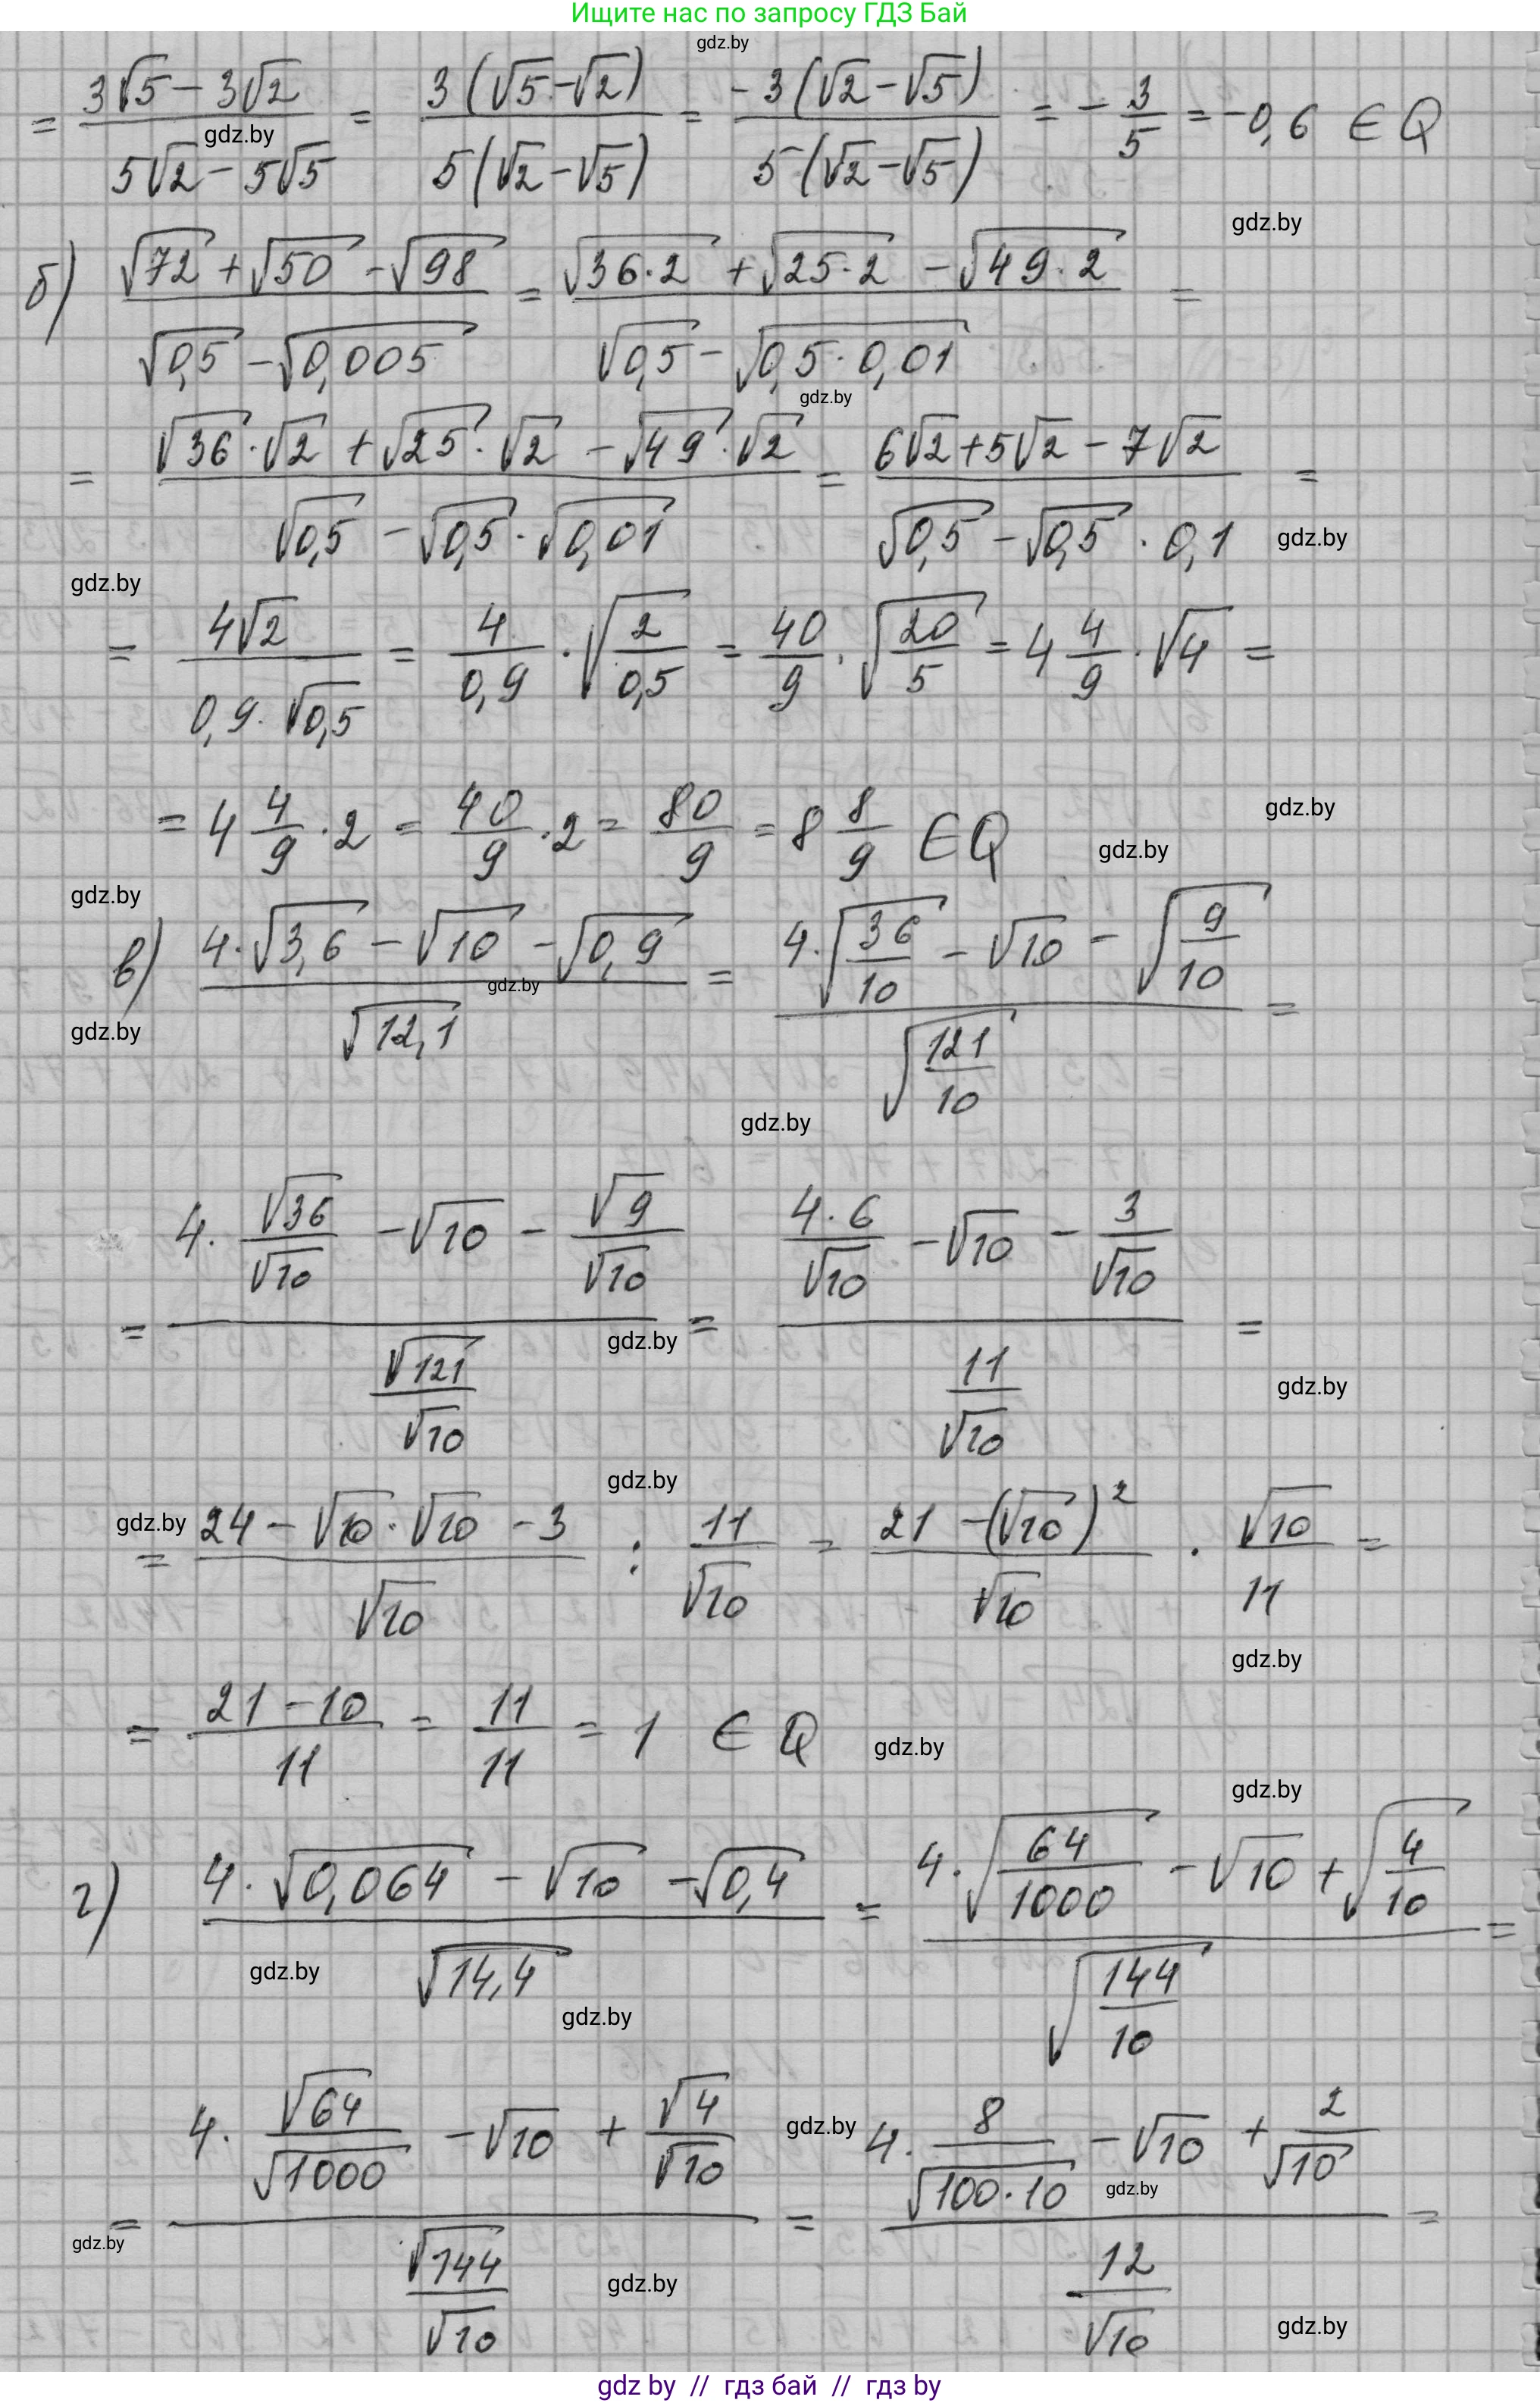 Ищите нас по запросу ГДЗ Бай
gdz.by
= (3√5 − 3√2)/(5√2 − 5√5) = 3(√5−√2)/5(√2−√5) = −3(√2−√5)/5(√2−√5) = −3/5 = −0,6 ∈ Q
gdz.by
gdz.by
б) (√72 + √50 − √98)/(√0,5 − √0,005) = (√36·2 + √25·2 − √49·2)/(√0,5 − √0,5·0,01) =
gdz.by
= (√36·√2 + √25·√2 − √49·√2)/(√0,5 − √0,5·√0,01) = (6√2+5√2 − 7√2)/(√0,5 − √0,5·0,1) =
gdz.by
gdz.by
= 4√2/(0,9·√0,5) = 4/0,9 · √(2/0,5) = 40/9 · √(20/5) = 4 4/9 · √4 =
gdz.by
= 4 4/9 · 2 = 40/9 · 2 = 80/9 = 8 8/9 ∈ Q
gdz.by
gdz.by
в) (4·√3,6 − √10 − √0,9)/√12,1 = (4·√(36/10) − √10 − √(9/10))/√(121/10) =
gdz.by
gdz.by
gdz.by
= (4·√36/√10 − √10 − √9/√10)/(√121/√10) = (4·6/√10 − √10 − 3/√10)/(11/√10) =
gdz.by
gdz.by
gdz.by
gdz.by
= (24 − √10·√10 − 3)/√10 : 11/√10 = (21 − (√10)²)/√10 · √10/11 =
gdz.by
= (21 − 10)/11 = 11/11 = 1 ∈ Q
gdz.by
gdz.by
г) (4·√0,064 − √10 − √0,4)/√14,4 = (4·√(64/1000) − √10 + √(4/10))/√(144/10) =
gdz.by
gdz.by
= (4·√64/√1000 − √10 + √4/√10)/(√144/√10) = (4·8/√100·10 − √10 + 2/√10)/(12/√10) =
gdz.by
gdz.by
gdz.by
gdz.by
gdz.by
gdz by // гдз бай // гдз by